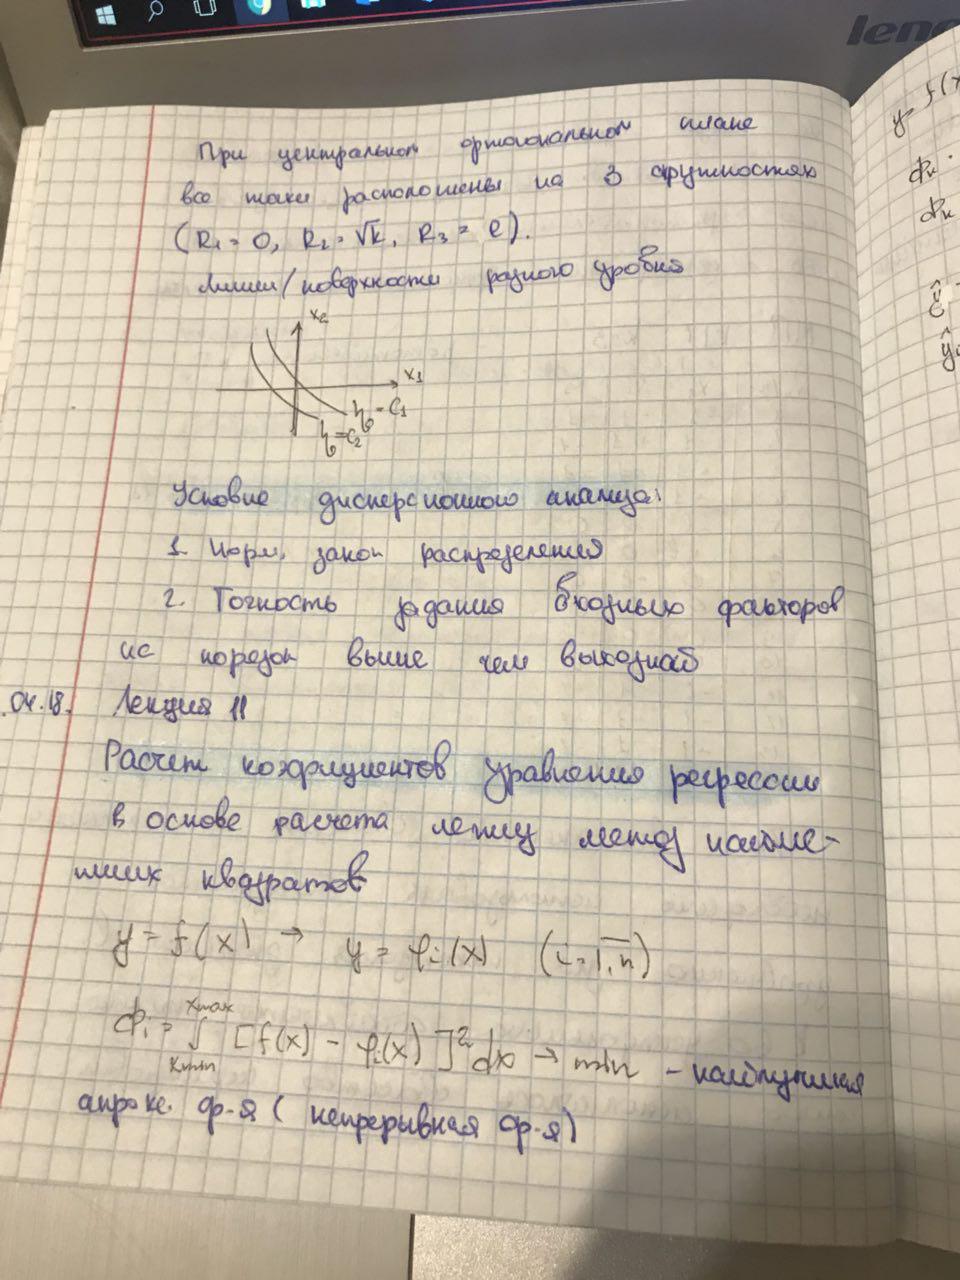 leno
При центральном ортогональном плане
все точки расположены на 3 окружностях
(R₁ = 0, R₂ = √k, R₃ = e).
Линии/поверхности разного уровня
x₂
x₁
= C₁
= C₂
Условие дисперсионного анализа:
1. Норм. закон распределения
2. Точность задания входных факторов
на порядок выше чем выходной
.04.18. Лекция 11
Расчет коэфициентов уравнения регрессии
В основе расчета лежит метод наиме-
ньших квадратов
y = f(x) → y = φᵢ(x) (i = 1,n)
xmax
Φᵢ = ∫ [f(x) - φᵢ(x)]² dx → min - наилучшая
xmin
апрокс. ф-я (непрерывная ф-я)
y = f(x
Φн
Φн
ŷ